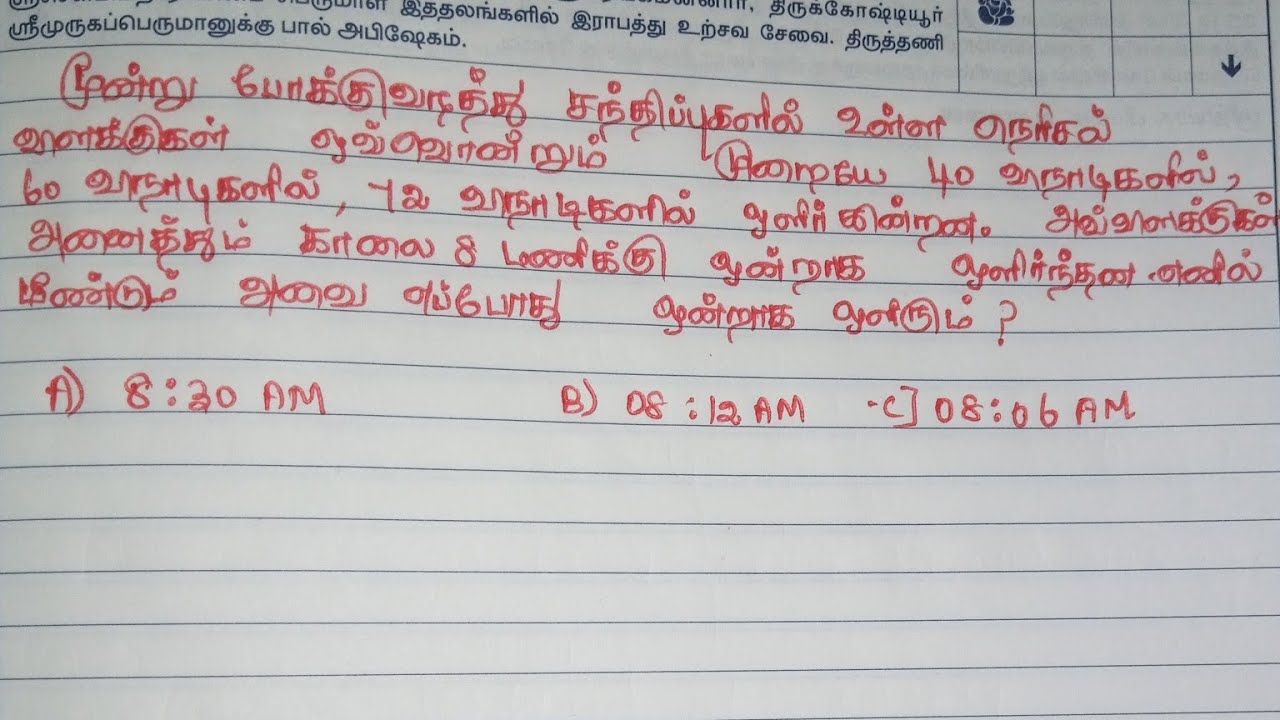 இத்தலங்களில் இராபத்து உற்சவ சேவை. திருத்தணி
ஸ்ரீமுருகப்பெருமானுக்கு பால் அபிஷேகம்.
மூன்று போக்குவரத்து சந்திப்புகளில் உள்ள நெரிசல்
விளக்குகள் ஒவ்வொன்றும் முறையே 40 வினாடிகளில்,
60 வினாடிகளில், 72 வினாடிகளில் ஒளிர்கின்றன. அவ்விளக்குகள்
அனைத்தும் காலை 8 மணிக்கு ஒன்றாக ஒளிர்ந்தன எனில்
மீண்டும் அவை எப்போது ஒன்றாக ஒளிரும்?
A) 8:30 AM B) 08:12 AM C] 08:06 AM